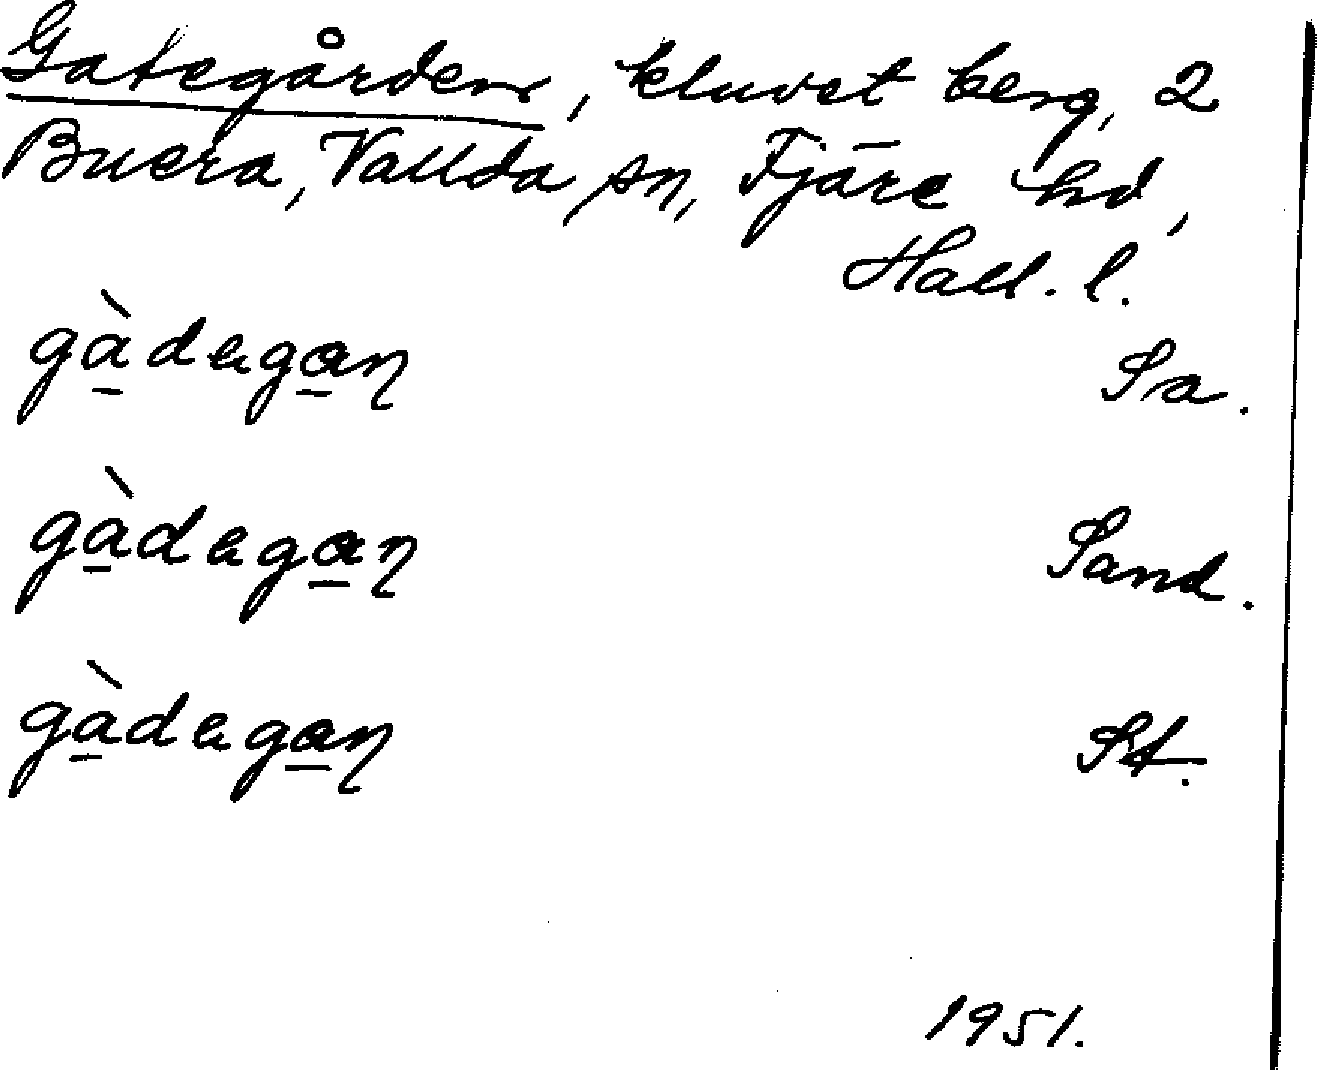 Gategården, kluvet berg, 2
Buera, Vallda sn, Fjäre hd,
Hall. l.
gàdegan Sa.
gàdegan Sand.
gàdegan St.
1951.